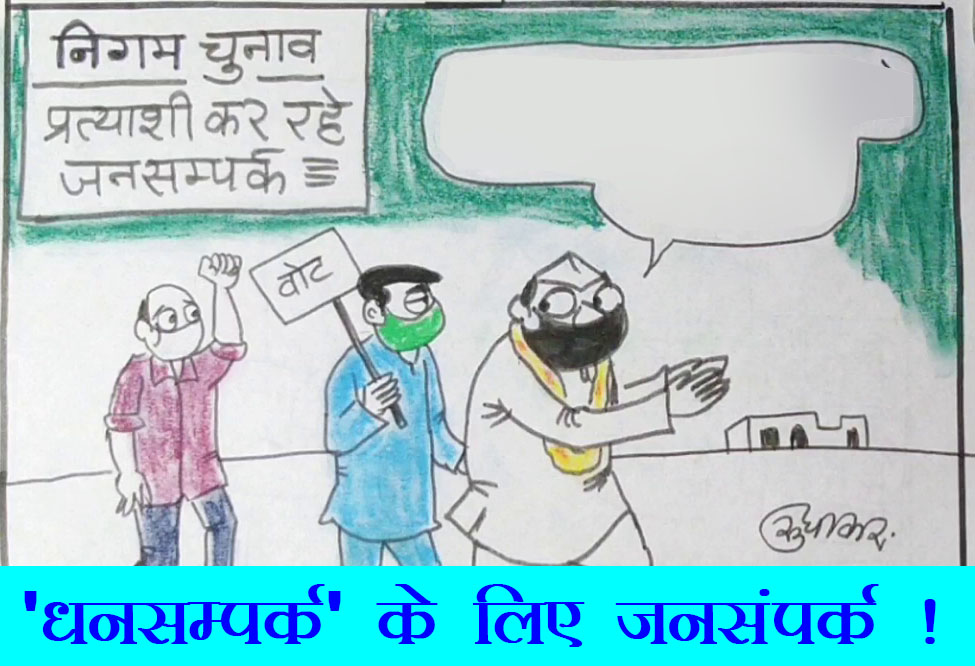 निगम चुनाव
प्रत्याशी कर रहे
जनसम्पर्क
वोट
सुधाकर.
'धनसम्पर्क' के लिए जनसंपर्क !